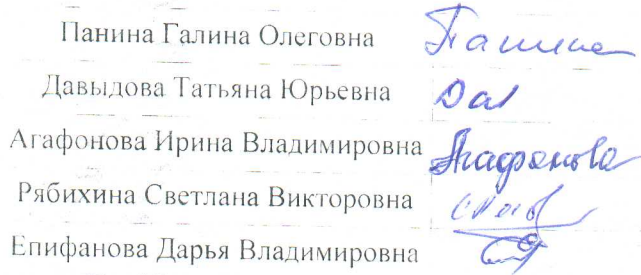 Панина Галина Олеговна Панина
Давыдова Татьяна Юрьевна Дав
Агафонова Ирина Владимировна Агафонова
Рябихина Светлана Викторовна
Епифанова Дарья Владимировна